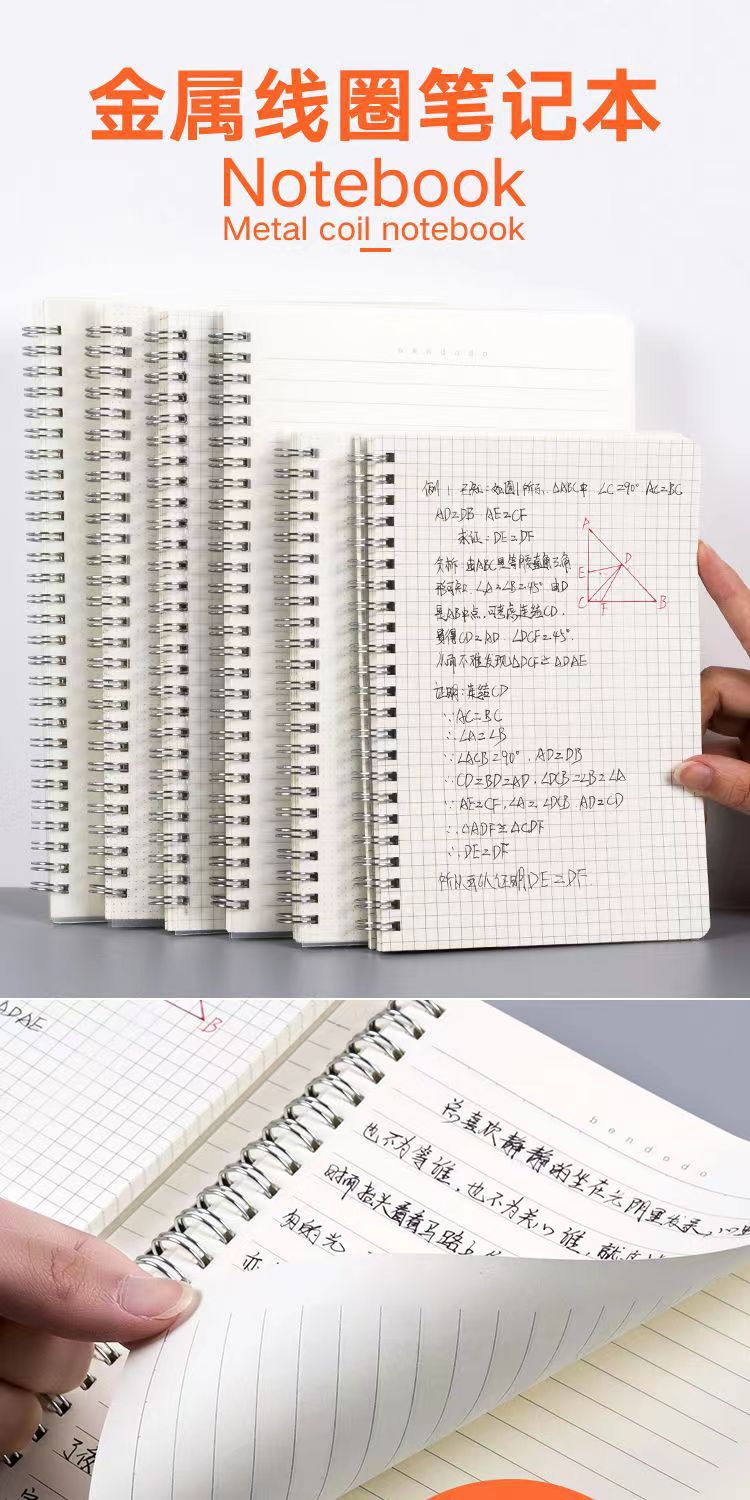 金属线圈笔记本
Notebook
Metal coil notebook
bendodo
例1 已知:如图1所示,△ABC中 ∠C=90° AC=BC
AD=DB AE=CF
求证:DE=DF
分析:由ABC是等腰直角三角
形可知,∠A=∠B=45° 由D
是AB中点,可考虑连结CD,
易得CD=AD ∠DCF=45°.
从而不难发现△DCF≌△DAE
证明:连结CD
∵AC=BC
∴∠A=∠B
∵∠ACB=90°,AD=DB
∴CD=BD=AD,∠DCB=∠B=∠A
∵AE=CF,∠A=∠DCB AD=CD
∴△ADF≌△CDF
∴DE=DF
所以可以证明DE=DF
A
D
E
C
F
B
△DAE
B
bendodo
总喜欢静静的坐在光阴里发呆,
也不为等谁,也不为关心谁,就
抬头看看马路上
的光
亦
了夜